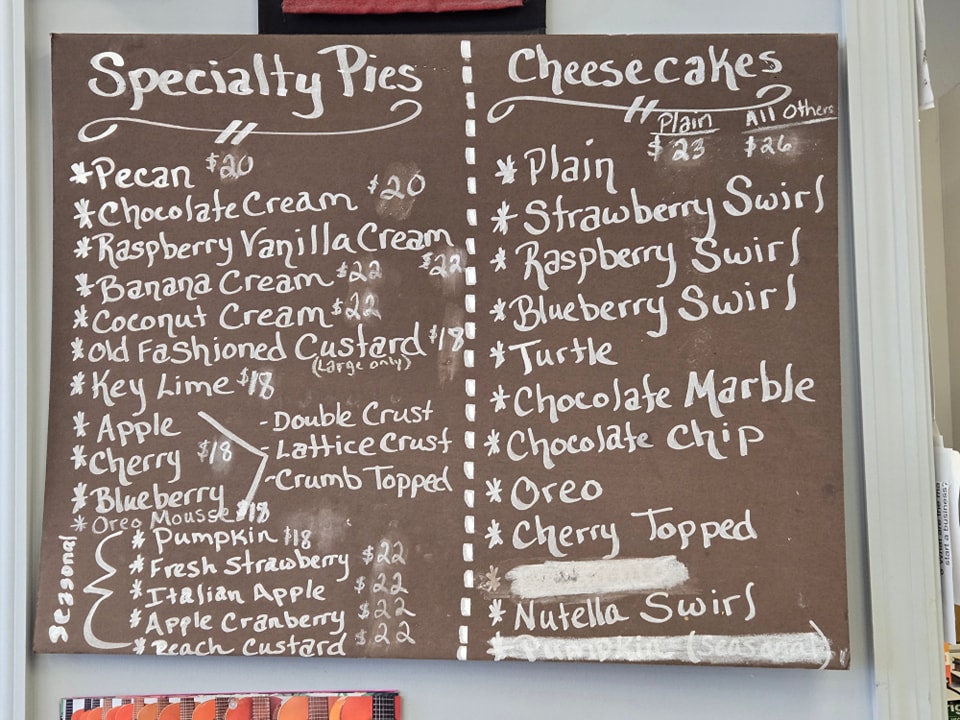 Specialty Pies
* Pecan $20
* Chocolate Cream $20
* Raspberry Vanilla Cream $22
* Banana Cream $22
* Coconut Cream $22
* Old Fashioned Custard $18
(Large only)
* Key Lime $18
* Apple
* Cherry $18
* Blueberry
- Double Crust
- Lattice Crust
- Crumb Topped
* Oreo Mousse $18
Seasonal
* Pumpkin $18
* Fresh Strawberry $22
* Italian Apple $22
* Apple Cranberry $22
* Peach Custard $22
Cheesecakes
Plain All Others
$23 $26
* Plain
* Strawberry Swirl
* Raspberry Swirl
* Blueberry Swirl
* Turtle
* Chocolate Marble
* Chocolate Chip
* Oreo
* Cherry Topped
*
* Nutella Swirl
* Pumpkin (seasonal)
start a business?